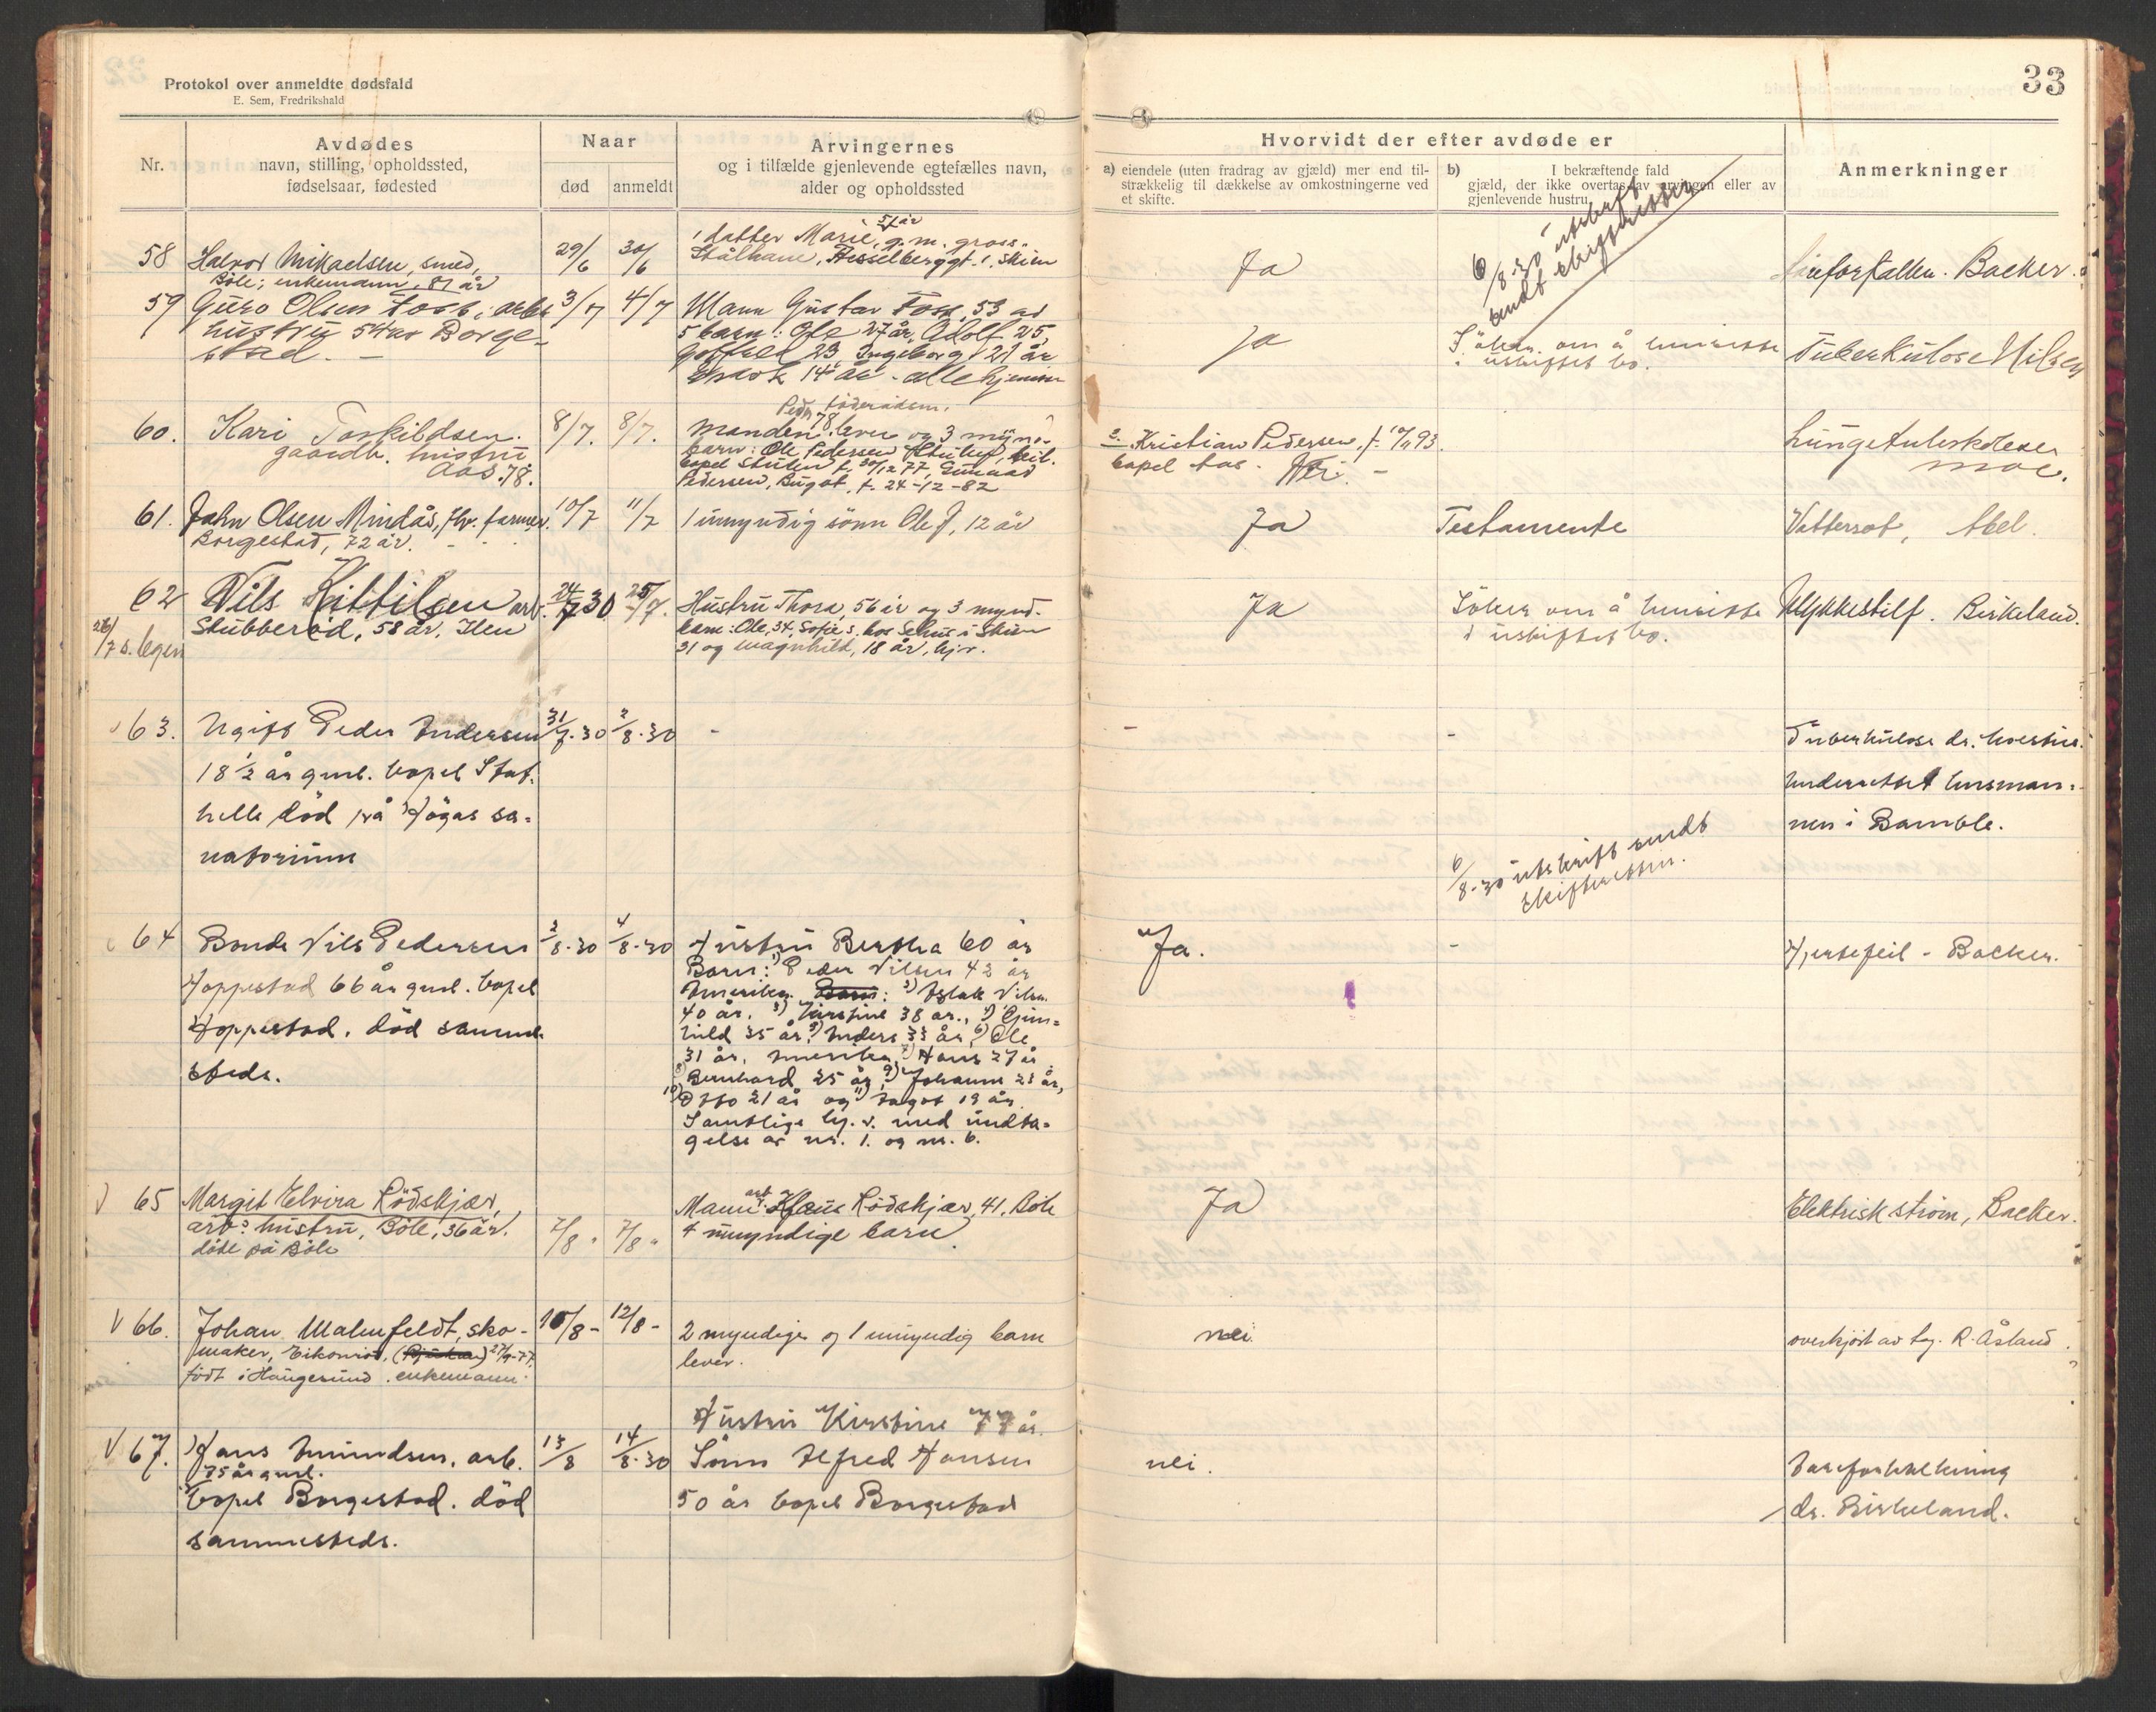 Protokol over anmeldte dødsfald
E. Sem, Fredrikshald
33
Nr.
Avdødes
navn, stilling, opholdssted,
fødselsaar, fødested
Naar
død
anmeldt
Arvingernes
og i tilfælde gjenlevende egtefælles navn,
alder og opholdssted
Hvorvidt der efter avdøde er
a) eiendele (uten fradrag av gjæld) mer end til-
strækkelig til dækkelse av omkostningerne ved
et skifte.
b) I bekræftende fald
gjæld, der ikke overtas av arvingen eller av
gjenlevende hustru
Anmerkninger
58
Halvor Mikaelsen, smed,
Böle; enkemann, 81 år
29/6
30/6
1 datter Marie, 51 år, g.m. gross.
Stålhane, Hesselberggt. 1, Skien
Ja
6/8-30 utskrift
sendt skifteretten
Åreforkalkn. Backer.
59
Guro Olsen Foss, arb.
hustru 54 år Borge-
stad. -
3/7
4/7
Mann Gustav Foss, 53 år
5 barn: Ole 27 år, Adolf 25,
Gotfred 23, Ingeborg 21 år
14 år - alle hjemme
Ja
Söker om å hensitte
i uskiftet bo.
Tuberkulose Nilsen
60.
Kari Torkildsen.
gaardb. hustru
Aas. 78.
8/7.
8/7.
Peder föderådsm.
Manden 78 lever og 3 mynd.
barn: Ole Pedersen
bopel Stulen f. 30/12 77, Gunnar
Pedersen, f. 24-12-82
3. Kristian Pedersen, f. 10/11 93.
bopel Aas. Nei. -
Lungetuberkulose
Moe.
61.
John Olsen Mindås, fhv. farmer.
Borgestad, 72 år.
10/7
11/7
1 umyndig sönn Ole J, 12 år
Ja
Testamente
Vattersot, Abel.
62
Nils Kittilsen arb.
Stubberöd, 58 år.
26/7 s. legen
24/7 30
25/7.
Hustru Thora, 56 år og 3 mynd.
barn: Ole, 34, Sofie s. hos Sehus i Skien
31 og Magnhild, 18 år, hjv.
Ja
Söker om å hensitte
i uskiftet bo.
Ulykkestilf. Birkeland.
63.
Ugift Peder Andersen
18 1/2 år gml. bopel Stat-
helle död på Högås sa-
natorium
31/7-30
2/8-30
-
-
-
Tuberkulose dr.
Underrettet lensman-
nen i Bamble.
6/8-30 utskrift sendt
skifteretten.
64
Bonde Nils Pedersen
Hoppestad 66 år gml. bopel
Hoppestad. död samme-
steds.
3/8-30
4/8-30
Hustru Bertha 60 år
Barn: 1) Peder Nilsen 42 år
Amerika. Barn: 2) Aslak Nilsen
40 år. 3) Kirstine 38 år., 4) Gun-
hild 35 år. 5) Anders 33 år, 6) Ole
31 år. Amerika, 7) Hans 27 år
8) Bernhard 25 år, 9) Johanne 23 år,
10) Otto 21 år og 11) Aagot 19 år.
Samtlige hj. v. med undta-
gelse av nr. 1. og nr. 6.
Ja.
-
Hjertefeil - Backer.
65
Margit Elvira Rödskjær,
arb.s hustru, Böle, 36 år.
döde på Böle
7/8
7/8
Mann: arb. Klaus Rödskjær, 41, Böle
4 umyndige barn
Ja
Elektrisk ström, Backer.
66.
Johan Malmfeldt, sko-
maker, Eikonrød, 27/9-77,
födt i Haugesund. enkemann.
10/8-
12/8-
2 myndige og 1 umyndig barn
lever.
nei
overkjört av tog. R. Åsland.
67.
Hans Amundsen, arb.
75 år gml.
bopel Borgestad. död
sammesteds.
13/8
14/8-30
Hustru Kirstine 77 år.
Sönn Alfred Hansen
50 år bopel Borgestad
nei.
Åreforkalkning
dr. Birkeland.